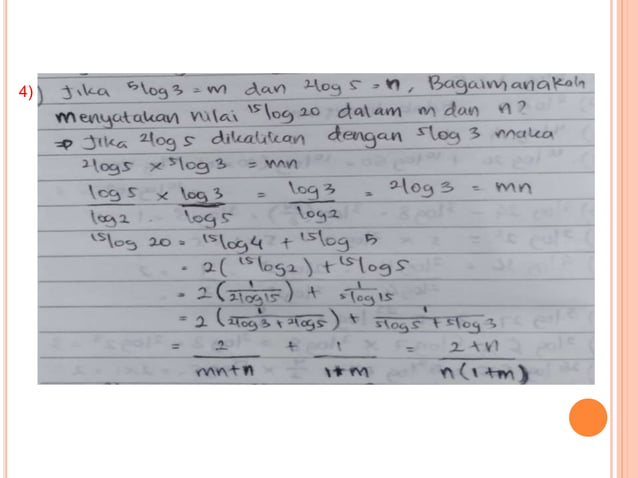 4)
) Jika ⁵log 3 = m dan ²log 5 = n, Bagaimanakah
menyatakan nilai ¹⁵log 20 dalam m dan n?
⇒ Jika ²log 5 dikalikan dengan 5log 3 maka
²log5 × ⁵log 3 = mn
log 5 / log 2 × log 3 / log 5 = log 3 / log 2 = ²log 3 = mn
¹⁵log 20 = ¹⁵log 4 + ¹⁵log 5
= 2( ¹⁵log 2) + ¹⁵log 5
= 2 (1 / ²log 15) + 1 / ⁵log 15
= 2 (1 / ²log 3 + ²log 5) + 1 / ⁵log 5 + ⁵log 3
= 2 / mn+n + 1 / 1+m = 2+n / n(1+m)